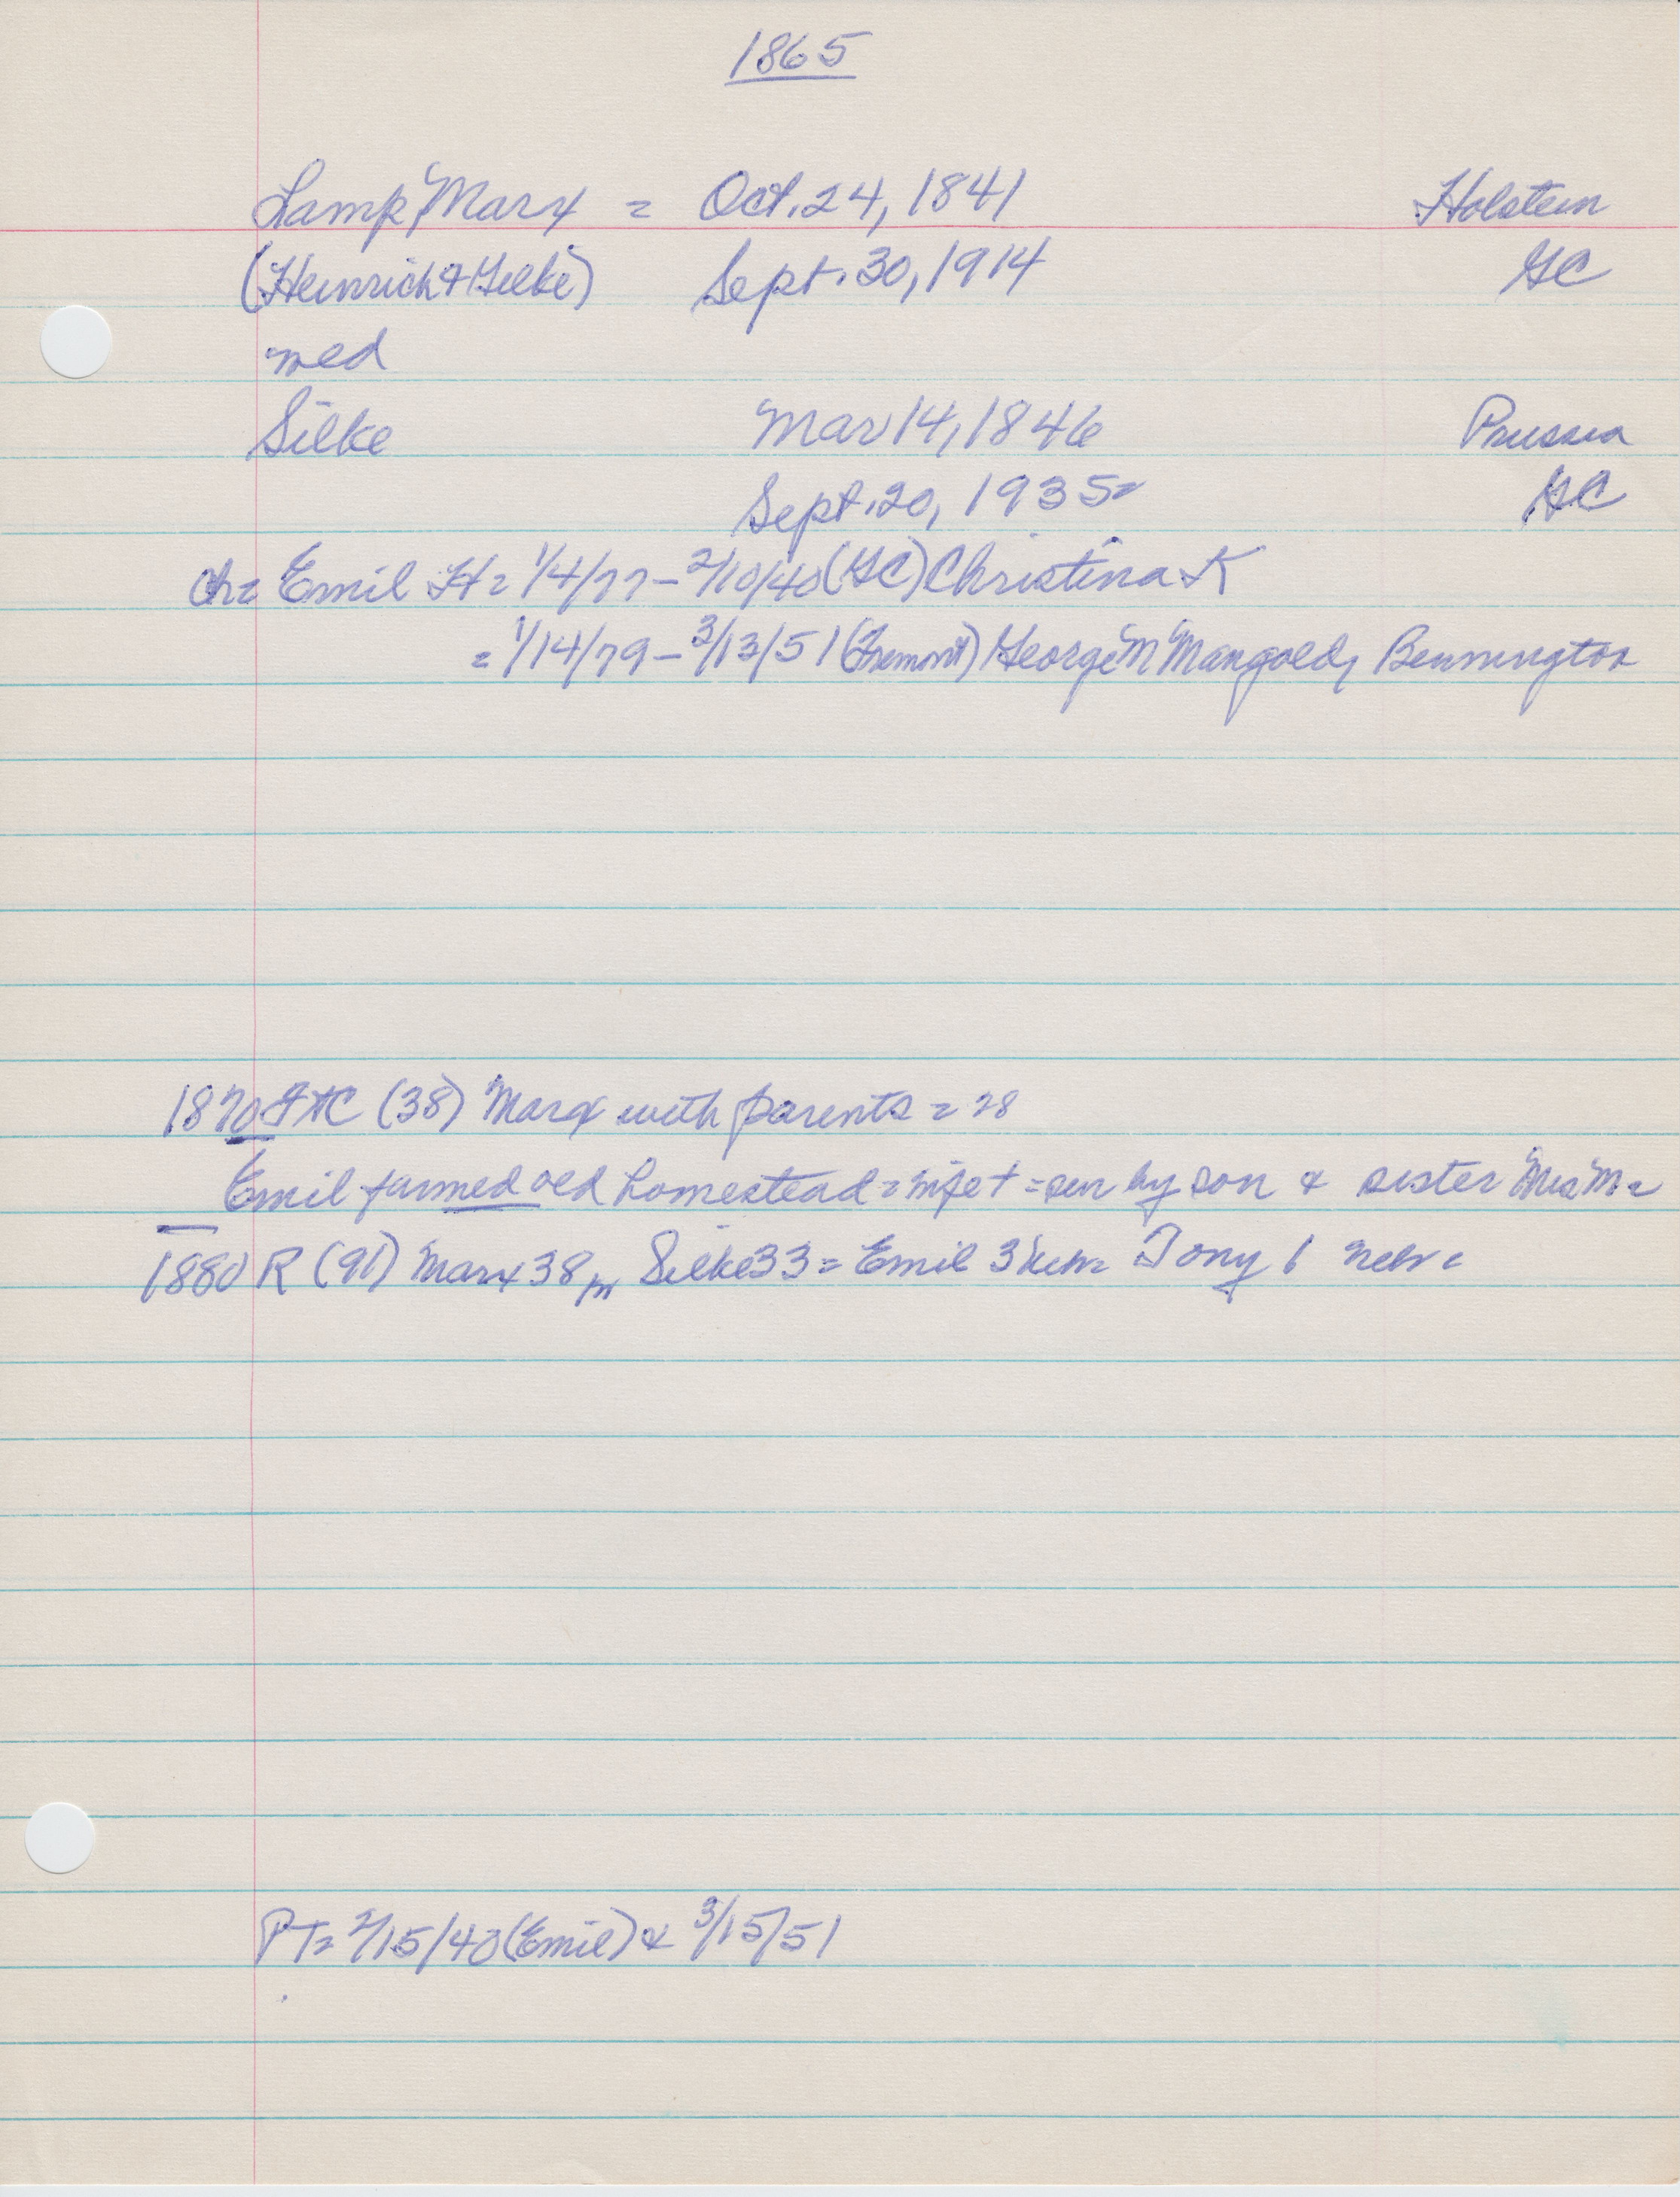 1865
Lamp, Marx = Oct. 24, 1841 Holstein
(Heinrich & Silke) Sept. 30, 1914 GC
med
Silke Mar 14, 1846 Prussia
Sept. 20, 1935 = GC
ch = Emil H = 1/4/77 - 2/10/40 (GC) Christina K
= 1/14/79 - 3/13/51 (Fremont) George M Mangold, Bennington
1870 (38) Marx with parents = 28
Emil farmed old homestead = wife + = sur by son & sister Mrs M =
1880 R (91) Marx 38 Silke 33 = Emil 3 Neb = Tony 1 Neb =
PT = 2/15/40 (Emil) & 3/15/51